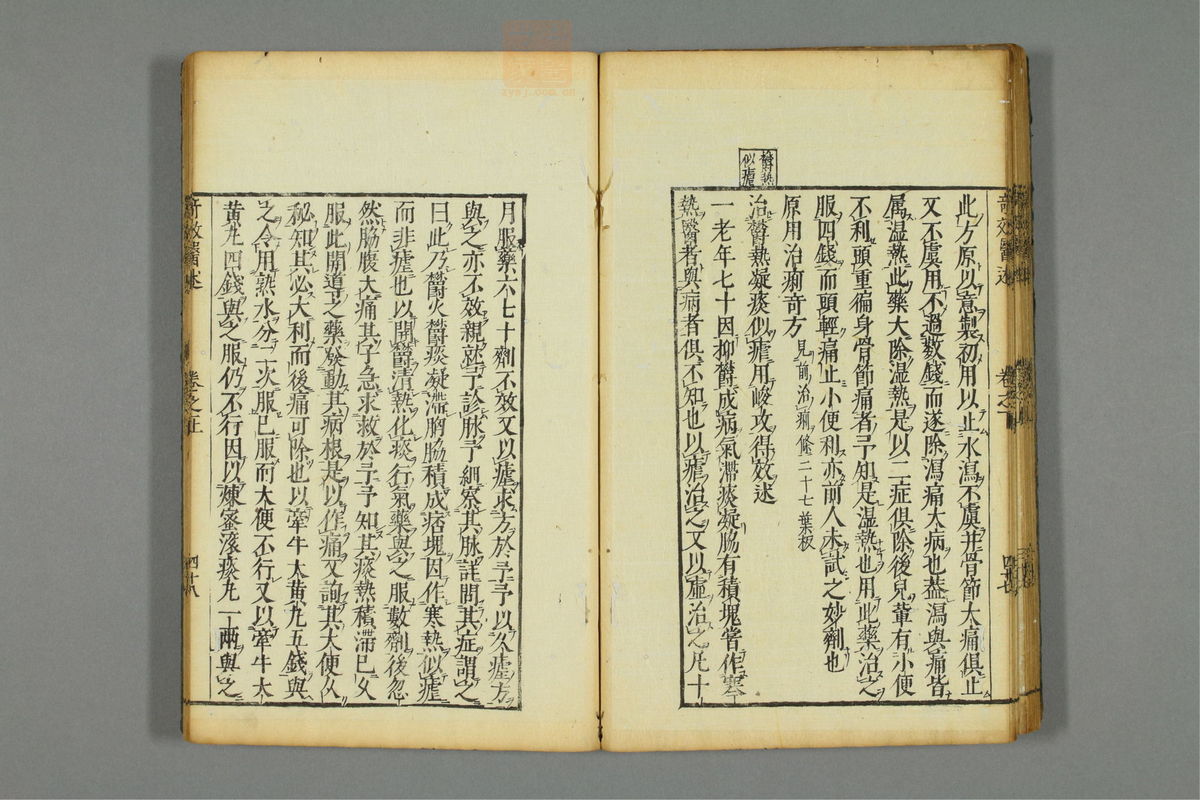 此方原以意製初用以止水瀉不虞并骨節大痛俱止
又不虞用不過数錢而遂除瀉痛大病也葢瀉與痛皆
属湿熱此藥大除湿熱是以二症俱除後兒軰有小便
不利頭重徧身骨節痛者予知是湿熱也用此藥治之
服四錢而頭輕痛止小便利亦前人未試之妙劑也
原用治痢奇方 見前治痢條二十七葉板
鬱熱似瘧
治鬱熱凝痰似瘧用峻攻得效述
一老年七十因抑鬱成病氣滯痰凝脇有積塊甞作寒
熱醫者與病者俱不知也以瘧治之又以虛治之凡十
月服藥六七十劑不效又以瘧求方於予予以久瘧方
與之亦不效親就予診脉予細察其脉詳問其症謂之
曰此乃鬱火鬱痰凝滯胸脇積成痞塊因作寒熱似瘧
而非瘧也以開鬱清熱化痰行氣藥與之服數劑後忽
然脇腹大痛其子急求救於予予知其痰熱積滯已久
服此開導之藥發動其病根是以作痛又詢其大便久
秘知其必大利而後痛可除也以牽牛大黄丸五錢與
之令用熱水分二次服已服而大便不行又以牽牛大
黄丸四錢與之服仍不行因以煉蜜滚痰丸一兩與之
奇效醫述
卷之
四十八